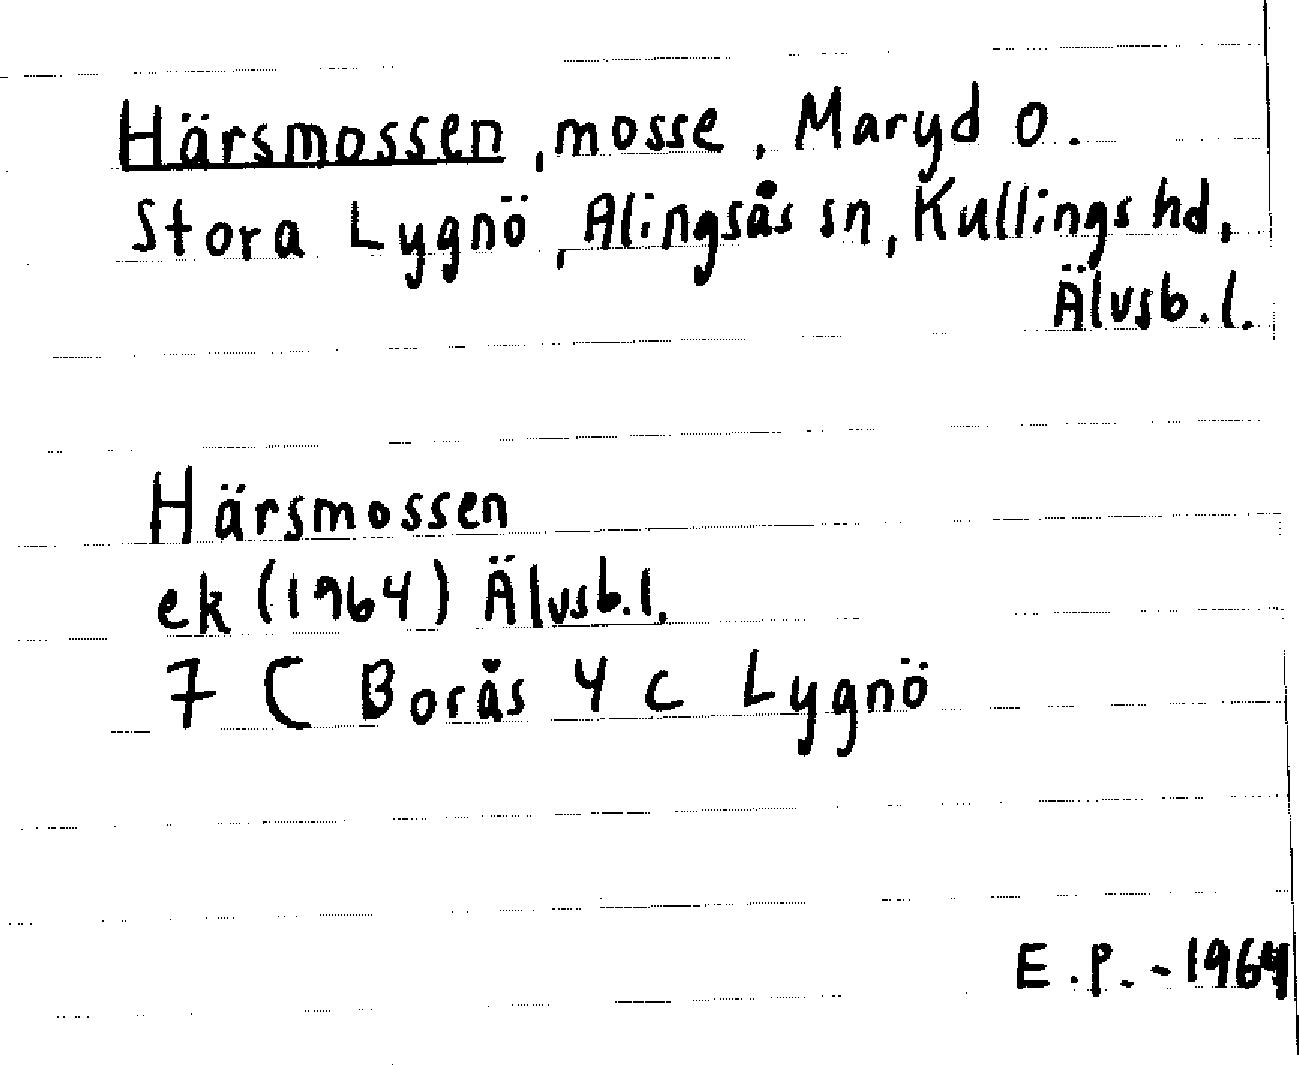 Härsmossen, mosse, Maryd o.
Stora Lygnö, Alingsås sn, Kullings hd,
Älvsb. l.
Härsmossen
ek (1964) Älvsb. l.
7 C Borås 4 c Lygnö
E. P. - 1964